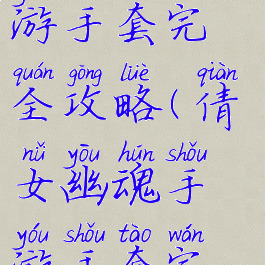 游手套完
quán gōng lüè qiàn
全攻略(倩
nǚ yōu hún shǒu
女幽魂手
yóu shǒu tào wán
游手套完